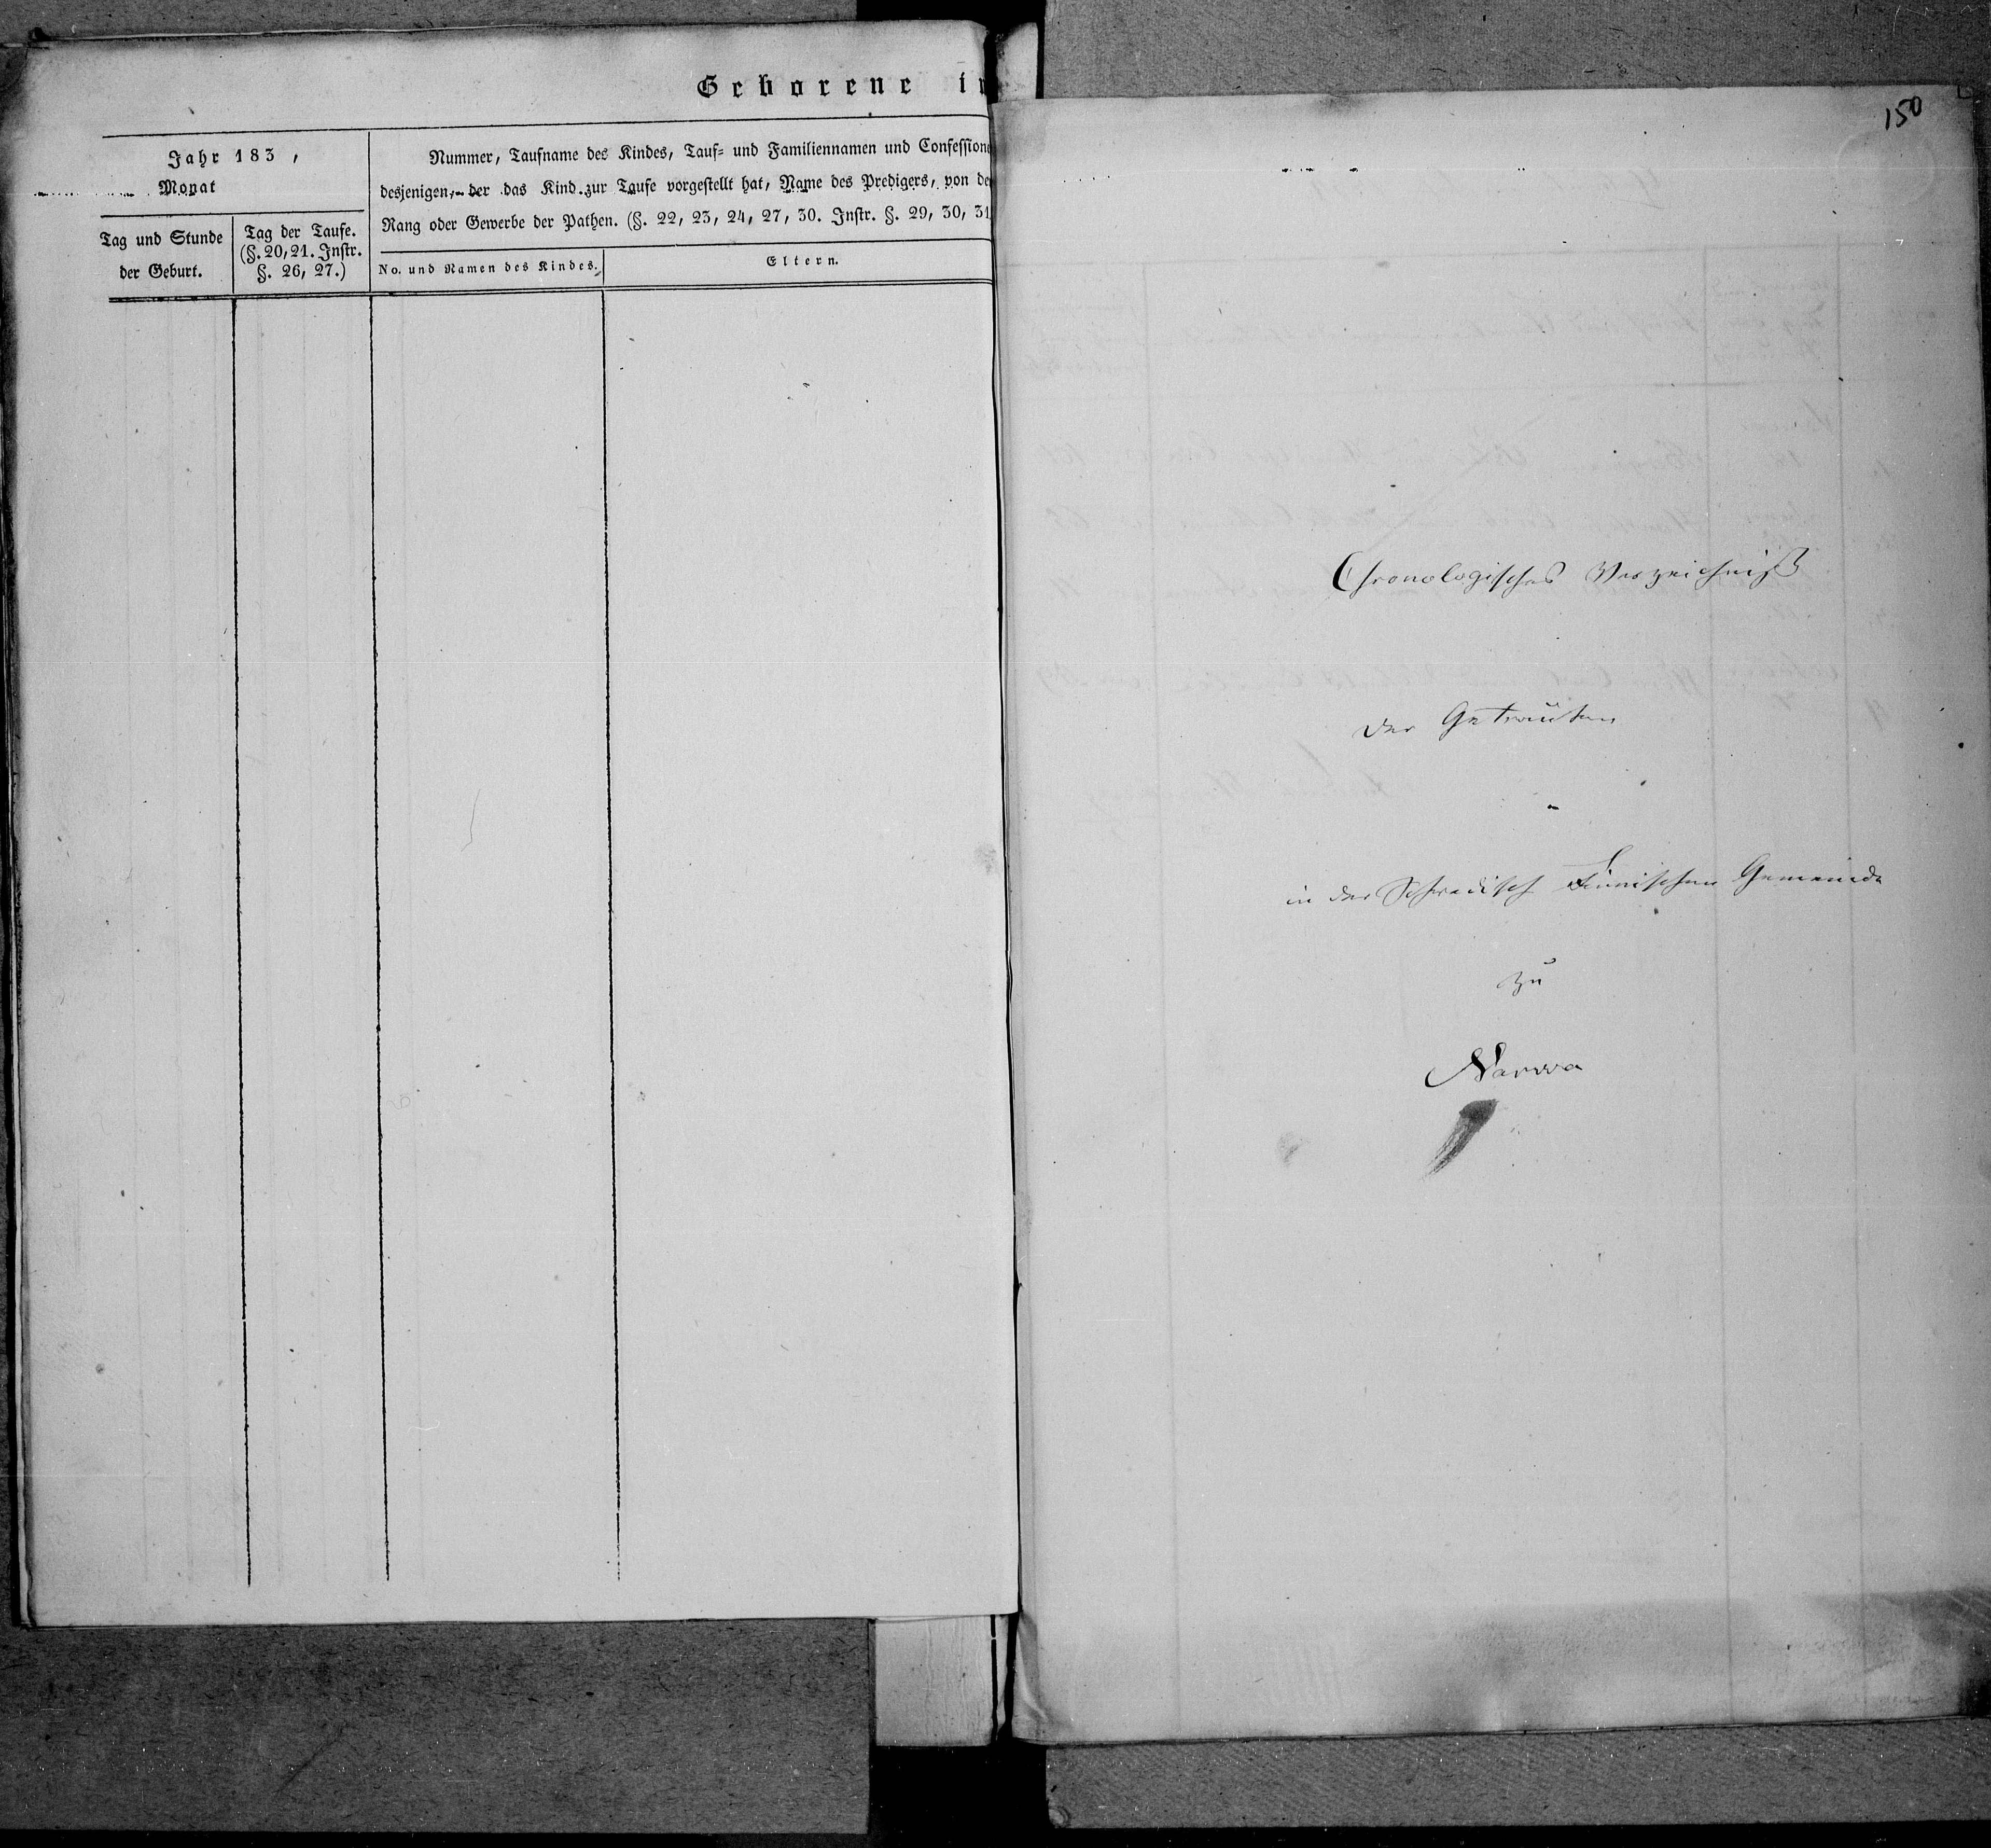 Geborene in
Jahr 183 ,
Monat
Tag und Stunde
der Geburt.
Tag der Taufe.
(§. 20, 21. Instr.
§. 26, 27.)
Nummer, Taufname des Kindes, Tauf- und Familiennamen und Confession
desjenigen, der das Kind zur Taufe vorgestellt hat, Name des Predigers, von de
Rang oder Gewerbe der Pathen. (§. 22, 23, 24, 27, 30. Instr. §. 29, 30, 31
No. und Namen des Kindes.
Eltern.
150
Chronologisches Verzeichniß
der Getrauten
in der Schwedisch Finnischen Gemeinde
zu
Narwa